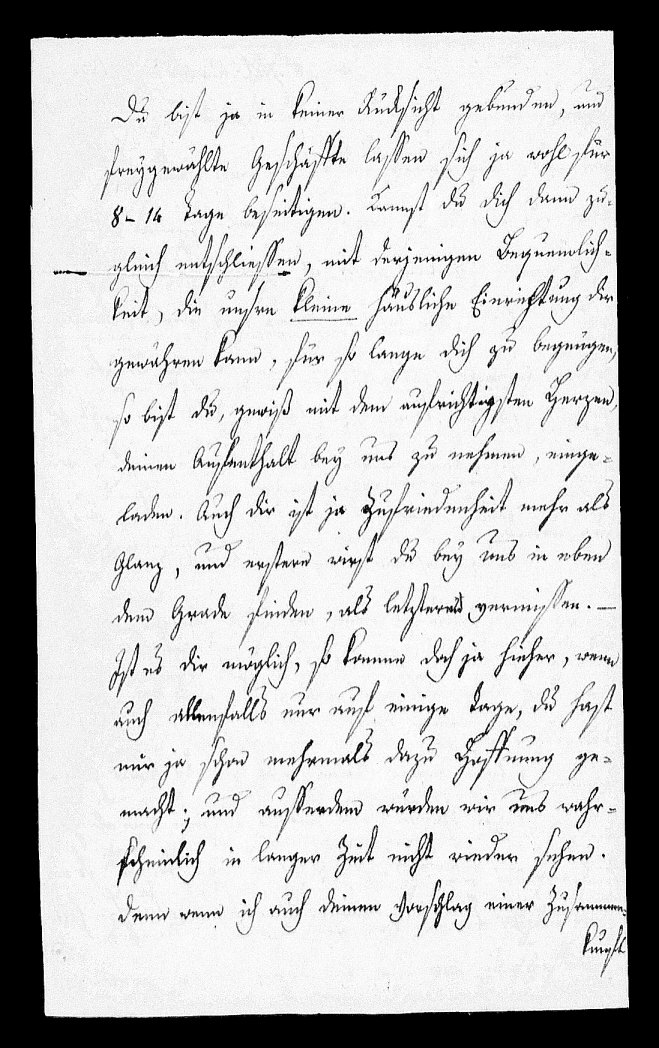 Du bist ja in keiner Rücksicht gebunden, und
freygewählte Geschäffte lassen sich ja wohl für
8–14 Tage beseitigen. Kannst du dich dann zu-
gleich entschliessen, mit derjenigen Bequemlich-
keit, die unsre kleine häusliche Einrichtung dir
gewähren kann, für so lange dich zu begnügen,
so bist du, gewiß mit dem aufrichtigsten Herzen,
deinen Aufenthalt bey uns zu nehmen, einge-
laden. Auch dir ist ja Zufriedenheit mehr als
Glanz, und erstere wirst du bey uns in eben
dem Grade finden, als letzteren vermissen. —
Ist es dir möglich, so komme doch ja hieher, wenn
auch allenfalls nur auf einige Tage, du hast
mir ja schon mehrmals dazu Hoffnung ge-
macht; und ausserdem würden wir uns wahr-
scheinlich in langer Zeit nicht wieder sehen.
Denn wenn ich auch deinen Vorschlag einer Zusammen-
kunft